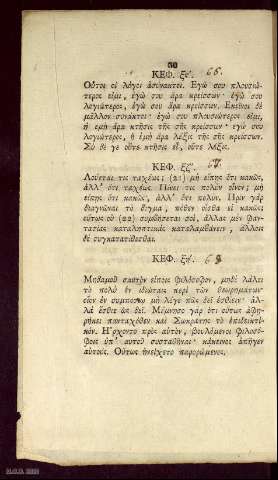 30
ΚΕΦ. ξϛ΄. 66.
Οὗτοι οἱ λόγοι ἀσύνακτοι. Ἐγώ σου πλουσιώ-
τερός εἰμι, ἐγώ σου ἄρα κρείσσων· ἐγώ σου
λογιώτερος, ἐγώ σου ἄρα κρείσσων. Ἐκεῖνοι δὲ
μᾶλλον συνακτοί· ἐγώ σου πλουσιώτερός εἰμι,
ἡ ἐμὴ ἄρα κτῆσις τῆς σῆς κρείσσων· ἐγώ σου
λογιώτερος, ἡ ἐμὴ ἄρα λέξις τῆς σῆς κρείσσων.
Σὺ δέ γε οὔτε κτῆσις εἶ, οὔτε λέξις.
ΚΕΦ. ξζ΄. 67.
Λούεταί τις ταχέως; (21) μὴ εἴπῃς ὅτι κακῶς,
ἀλλ᾽ ὅτι ταχέως. Πίνει τις πολὺν οἶνον; μὴ
εἴπῃς ὅτι κακῶς, ἀλλ᾽ ὅτι πολύν. Πρὶν γὰρ
διαγνῶναι τὸ δόγμα, πόθεν οἶσθα εἰ κακῶς
οὕτως οὐ (22) συμβήσεταί σοι, ἄλλας μὲν φαν-
τασίας καταληπτικὰς καταλαμβάνειν, ἄλλοις
δὲ συγκατατίθεσθαι.
ΚΕΦ. ξη΄. 68
Μηδαμοῦ σαυτὸν εἴπῃς φιλόσοφον, μηδὲ λάλει
τὸ πολὺ ἐν ἰδιώταις περὶ τῶν θεωρημάτων·
οἷον ἐν συμποσίῳ μὴ λέγε πῶς δεῖ ἐσθίειν· ἀλ-
λὰ ἔσθιε ὡς δεῖ. Μέμνησο γὰρ ὅτι οὕτως ἀφῃ-
ρήκει πανταχόθεν καὶ Σωκράτης τὸ ἐπιδεικτι-
κόν. Ἤρχοντο πρὸς αὐτόν, βουλόμενοι φιλοσό-
φοις ὑπ᾽ αὐτοῦ συσταθῆναι· κἀκεῖνος ἀπῆγεν
αὐτούς. Οὕτως ἠνείχετο παρορώμενος.